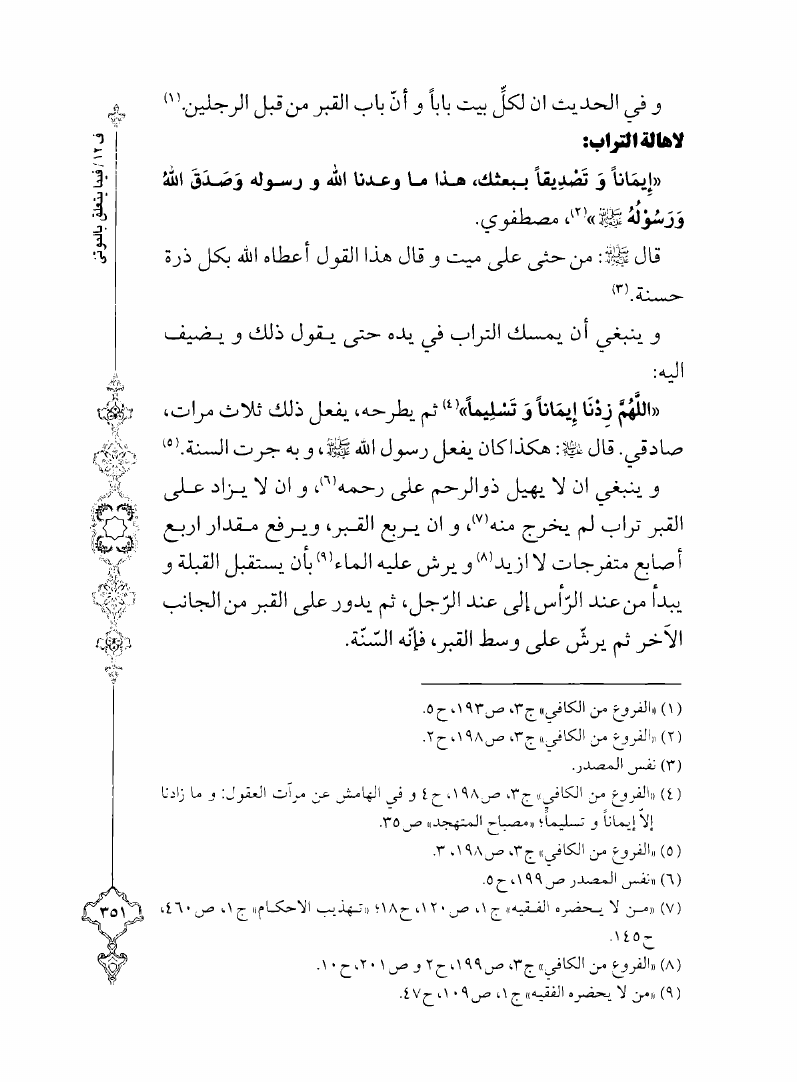 و في الحديث ان لكلِّ بيت باباً و أنّ باب القبر من قبل الرجلين.(١)
لاهالة التراب:
«إِيمَاناً وَ تَصْدِيقاً بـبعثك، هـذا مـا وعـدنا الله و رسـوله وَصَـدَقَ اللهُ
وَرَسُوْلُهُ ﷺ»(٢)، مصطفوي.
قال ﷺ: من حثى على ميت و قال هذا القول أعطاه الله بكل ذرة
حسنة.(٣)
و ينبغي أن يمسك التراب في يده حتى يـقول ذلك و يـضيف
اليه:
«اللَّهُمَّ زِدْنَا إِيمَاناً وَ تَسْلِيماً»(٤) ثم يطرحه، يفعل ذلك ثلاث مرات،
صادقي. قال ﷺ: هكذا كان يفعل رسول الله ﷺ، و به جرت السنة.(٥)
و ينبغي ان لا يهيل ذوالرحم على رحمه(٦)، و ان لا يـزاد عـلى
القبر تراب لم يخرج منه(٧)، و ان يـربع القـبر، ويـرفع مـقدار اربـع
أصابع متفرجات لا ازيد(٨) و يرش عليه الماء(٩) بأن يستقبل القبلة و
يبدأ من عند الرّأس إلى عند الرّجل، ثم يدور على القبر من الجانب
الآخر ثم يرشّ على وسط القبر، فإنّه السّنّة.
(١) «الفروع من الكافي» ج٣، ص١٩٣، ح٥.
(٢) «الفروع من الكافي» ج٣، ص١٩٨، ح٢.
(٣) نفس المصدر.
(٤) «الفروع من الكافي» ج٣، ص١٩٨، ح٤ و في الهامش عن مرآت العقول: و ما زادنا
إلاّ إيماناً و تسليماً؛ «مصباح المتهجد» ص٣٥.
(٥) «الفروع من الكافي» ج٣، ص١٩٨، ٣.
(٦) «نفس المصدر ص١٩٩، ح٥.
(٧) «مـن لا يـحضره الفـقيه» ج١، ص١٢٠، ح١٨؛ «تـهذيب الأحكـام» ج١، ص٤٦٠،
ح١٤٥.
(٨) «الفروع من الكافي» ج٣، ص١٩٩، ح٢ و ص٢٠١، ح١٠.
(٩) «من لا يحضره الفقيه» ج١، ص١٠٩، ح٤٧.
ف ١٢ / فيما يتعلق بالموتى
٣٥١